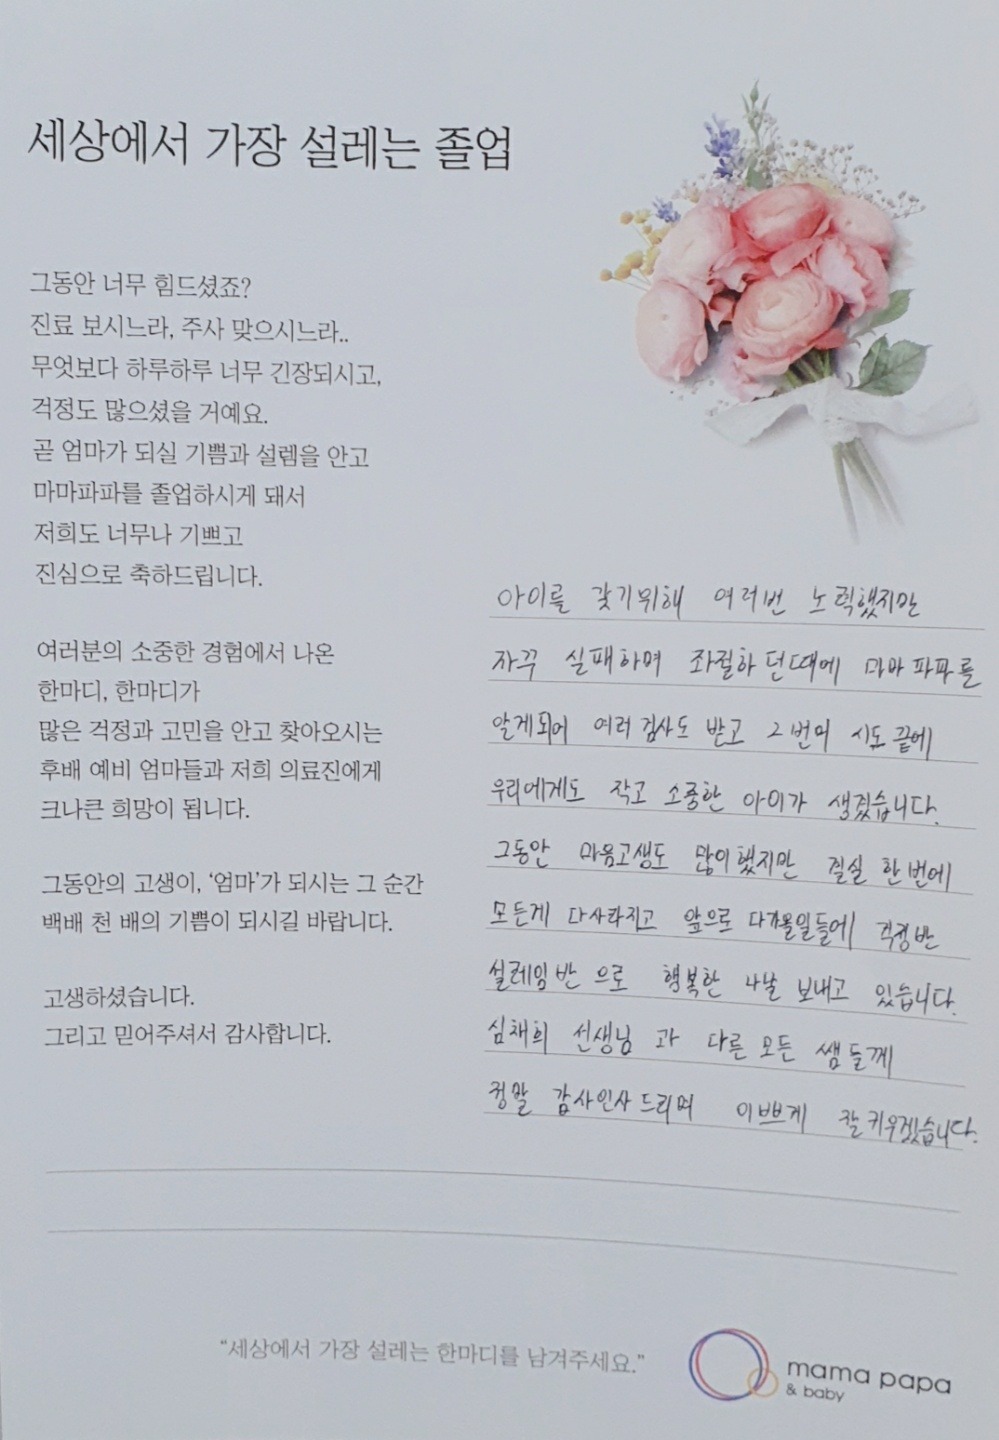 세상에서 가장 설레는 졸업
그동안 너무 힘드셨죠?
진료 보시느라, 주사 맞으시느라..
무엇보다 하루하루 너무 긴장되시고,
걱정도 많으셨을 거예요.
곧 엄마가 되실 기쁨과 설렘을 안고
마마파파를 졸업하시게 돼서
저희도 너무나 기쁘고
진심으로 축하드립니다.
여러분의 소중한 경험에서 나온
한마디, 한마디가
많은 걱정과 고민을 안고 찾아오시는
후배 예비 엄마들과 저희 의료진에게
크나큰 희망이 됩니다.
그동안의 고생이, ‘엄마’가 되시는 그 순간
백배 천 배의 기쁨이 되시길 바랍니다.
고생하셨습니다.
그리고 믿어주셔서 감사합니다.
아이를 갖기위해 여러번 노력했지만
자꾸 실패하며 좌절하던때에 마마파파를
알게되어 여러검사도 받고 2번의 시도 끝에
우리에게도 작고 소중한 아이가 생겼습니다.
그동안 마음고생도 많이했지만 결실 한번에
모든게 다사라지고 앞으로 다가올일들에 걱정반
설레임반으로 행복한 나날 보내고 있습니다.
심채희 선생님과 다른모든 쌤들께
정말 감사인사드리며 이쁘게 잘키우겠습니다.
“세상에서 가장 설레는 한마디를 남겨주세요.”
mama papa
& baby